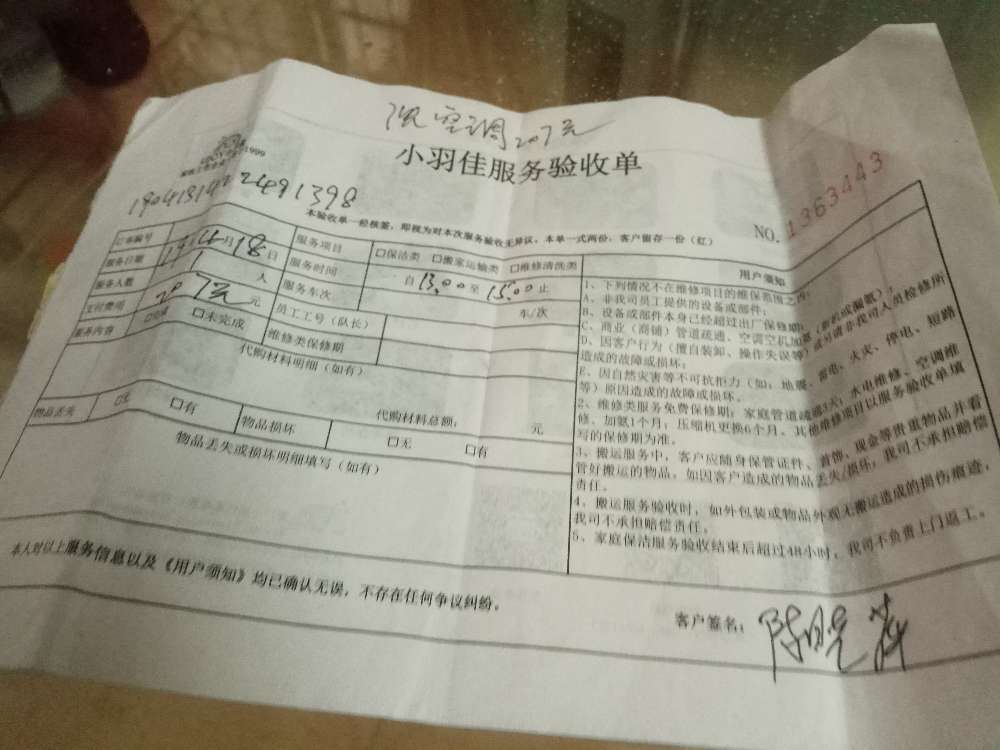 空调207元
1999
小羽佳服务验收单
NO. 1363443
2491398
本验收单一经核签，即视为对本次服务验收无异议，本单一式两份，客户留存一份（红）
订单编号
服务项目 □保洁类 □搬家运输类 □维修清洗类
服务日期 月18日 服务时间 自13.00至15.00止
服务人数 1人 服务车次 车/次
支付费用 207元 元 员工工号（队长）
服务内容 □完成 □未完成 维修类保修期
代购材料明细（如有）
代购材料总额： 元
物品丢失 □无 □有 物品损坏 □无 □有
物品丢失或损坏明细填写（如有）
用户须知
1、下列情况不在维修项目的维保范围之内：
A、非我司员工提供的设备或部件；
B、设备或部件本身已经超过出厂保修期；
C、商业（商铺）管道疏通、空调空机加氨（新机或漏氨）；
D、因客户行为（擅自装卸、操作失误等）或另请非我司人员检修所
造成的故障或损坏；
E、因自然灾害等不可抗拒力（如：地震、雷电、火灾、停电、短路
等）原因造成的故障或损坏。
2、维修类服务免费保修期：家庭管道疏通3天；水电维修、空调维
修、加氨1个月；压缩机更换6个月。其他维修项目以服务验收单填
写的保修期为准。
3、搬运服务中，客户应随身保管证件、首饰、现金等贵重物品并看
管好搬运的物品，如因客户造成的物品丢失/损坏，我司不承担赔偿
责任。
4、搬运服务验收时，如外包装或物品外观无搬运造成的损伤痕迹，
我司不承担赔偿责任。
5、家庭保洁服务验收结束后超过48小时，我司不负责上门返工。
本人对以上服务信息以及《用户须知》均已确认无误，不存在任何争议纠纷。
客户签名：